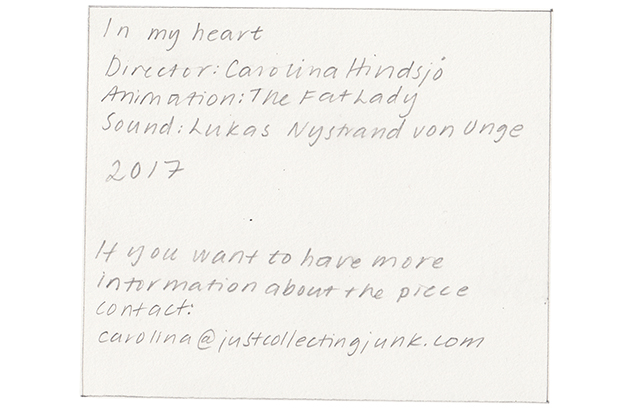 In my heart
Director: Carolina Hindsjö
Animation: The Fat Lady
Sound: Lukas Nystrand von Unge
2017
If you want to have more
information about the piece
contact:
carolina@justcollectingjunk.com